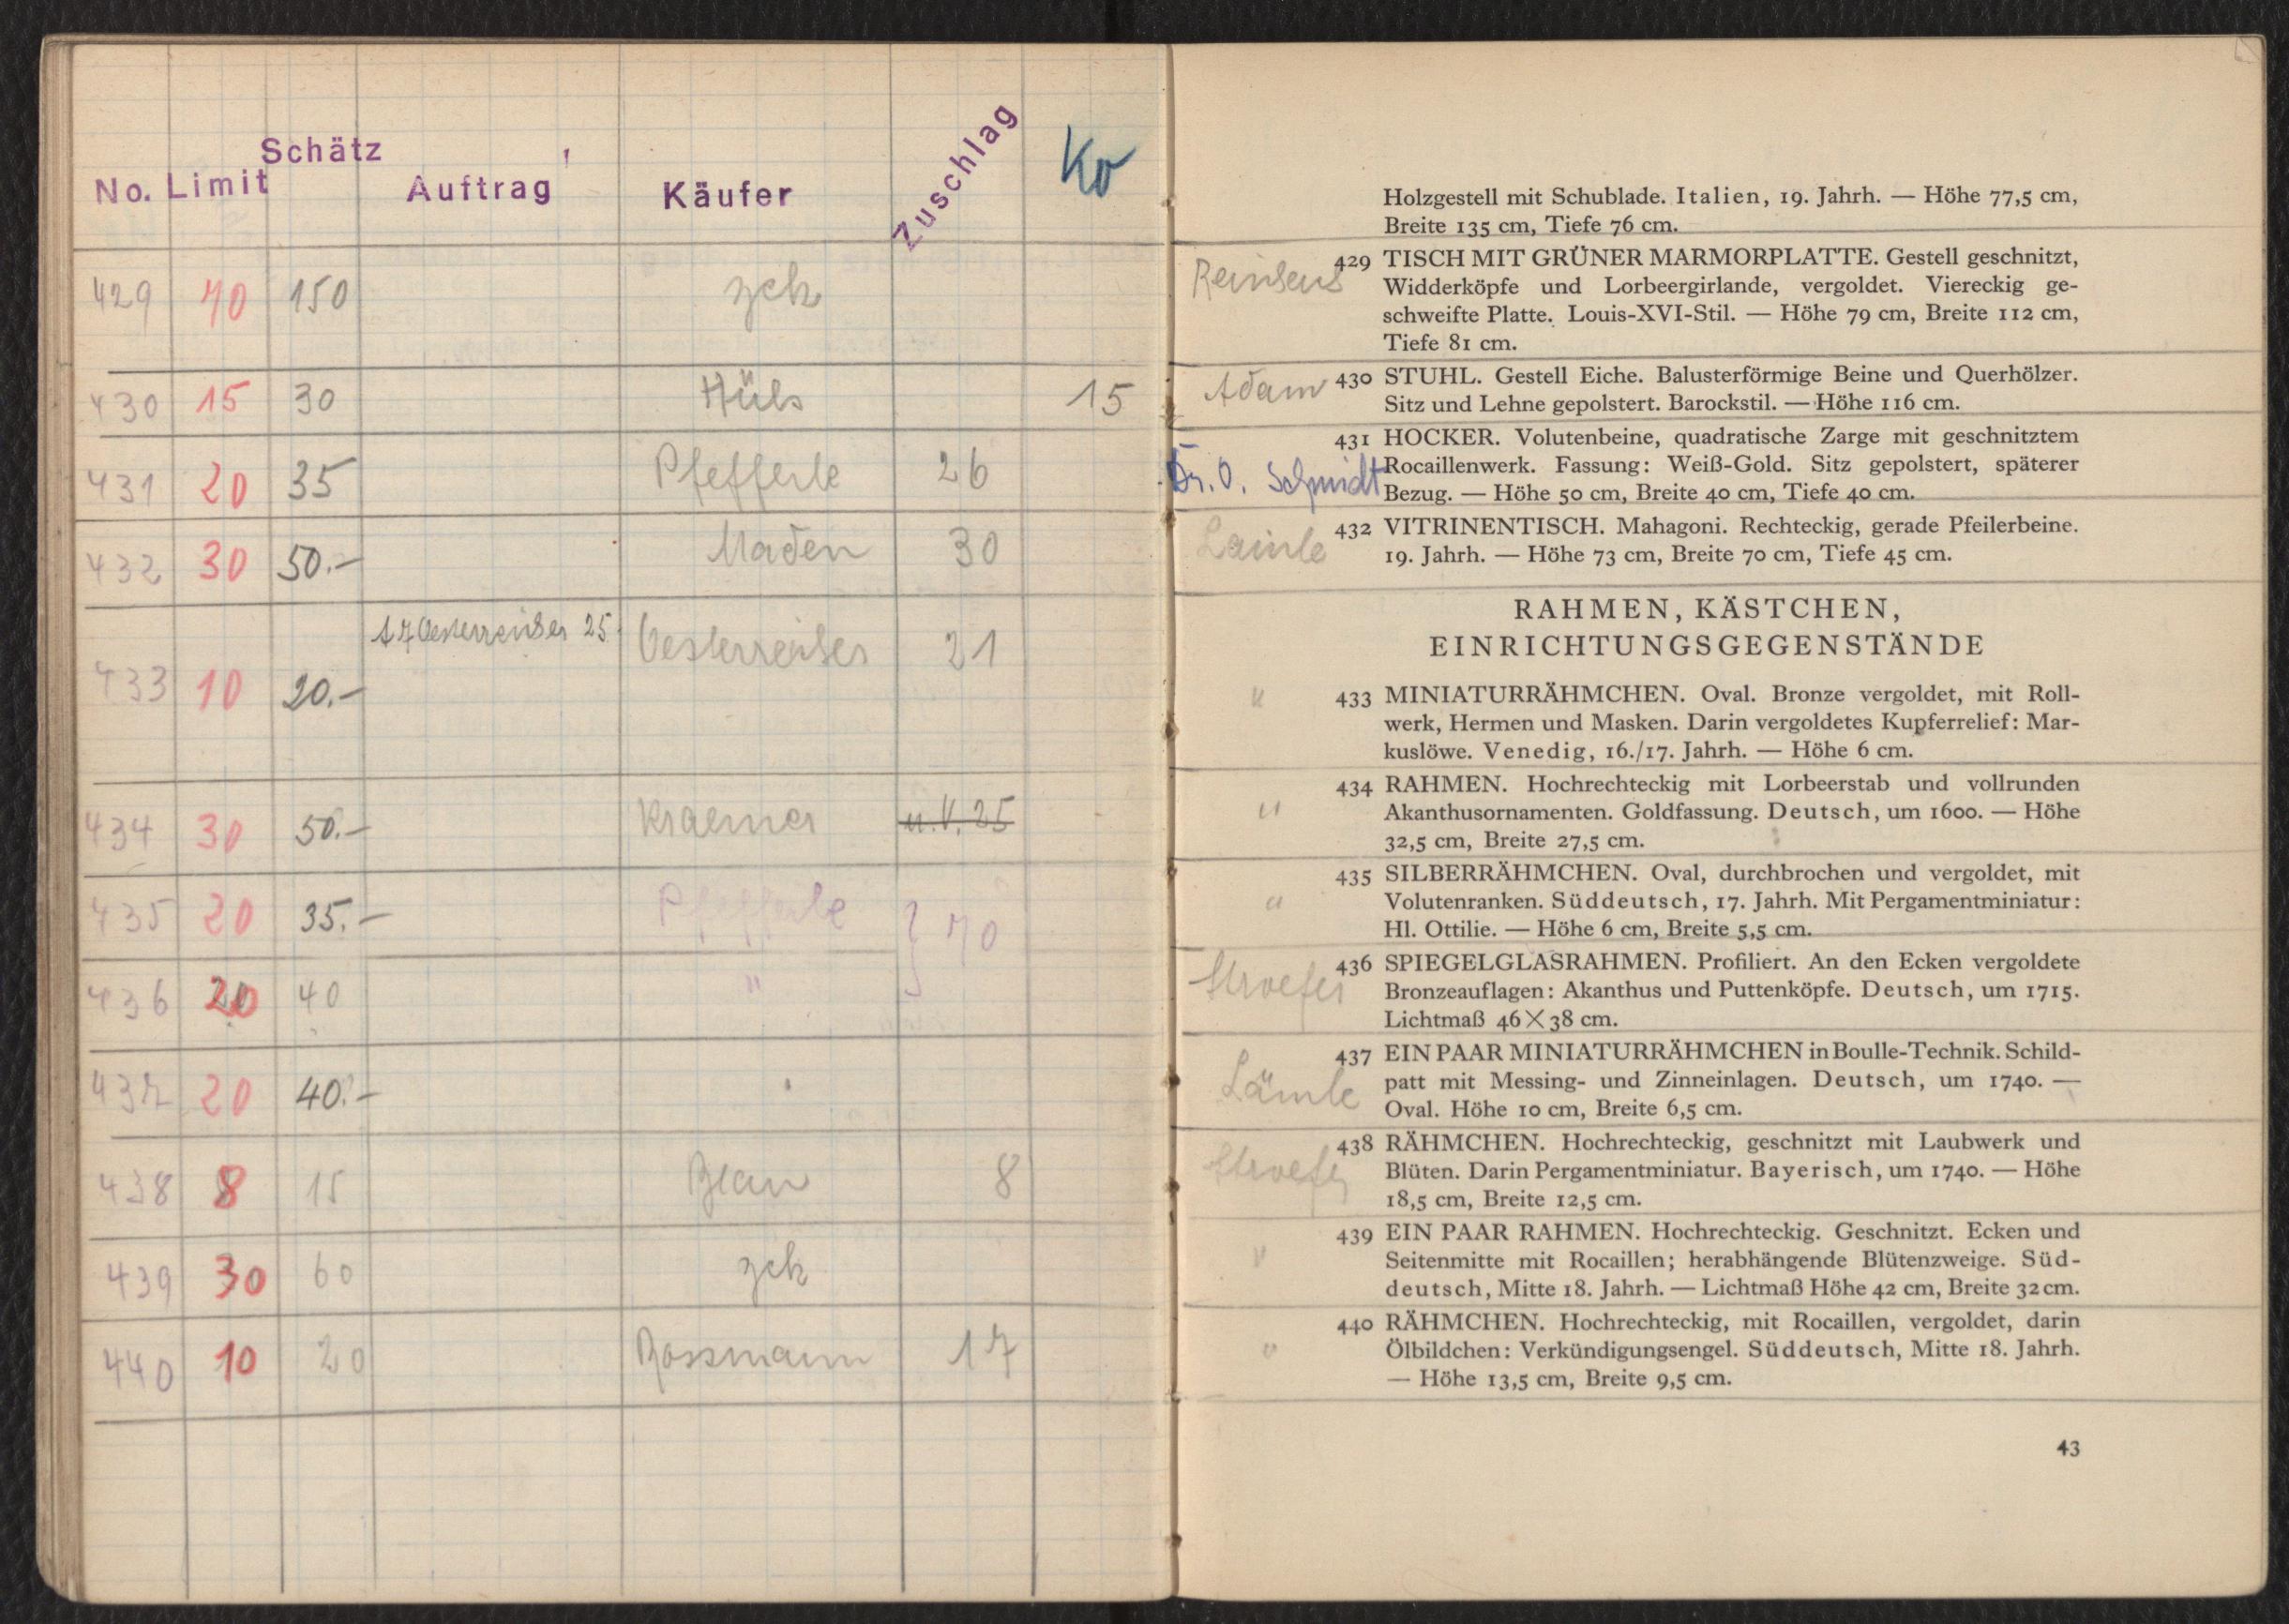 Schätz
No. Limit Auftrag Käufer Zuschlag Ko
429 70 150 zck
430 15 30 Hüls 15
431 20 35 Pfefferle 26
432 30 50.- Maden 30
433 10 20.- Oesterreicher 25 Oesterreicher 21
434 30 50.- Kraemer u.V. 25
435 20 35.- Pfefferle } 70
436 20 40 "
437 20 40.-
438 8 15 Blau 8
439 30 60 zck
440 10 20 Bossmann 17
Holzgestell mit Schublade. Italien, 19. Jahrh. — Höhe 77,5 cm,
Breite 135 cm, Tiefe 76 cm.
429 TISCH MIT GRÜNER MARMORPLATTE. Gestell geschnitzt,
Widderköpfe und Lorbeergirlande, vergoldet. Viereckig ge-
schweifte Platte. Louis-XVI-Stil. — Höhe 79 cm, Breite 112 cm,
Tiefe 81 cm.
Adam 430 STUHL. Gestell Eiche. Balusterförmige Beine und Querhölzer.
Sitz und Lehne gepolstert. Barockstil. — Höhe 116 cm.
431 HOCKER. Volutenbeine, quadratische Zarge mit geschnitztem
Dr. O. Schmidt Rocaillenwerk. Fassung: Weiß-Gold. Sitz gepolstert, späterer
Bezug. — Höhe 50 cm, Breite 40 cm, Tiefe 40 cm.
432 VITRINENTISCH. Mahagoni. Rechteckig, gerade Pfeilerbeine.
19. Jahrh. — Höhe 73 cm, Breite 70 cm, Tiefe 45 cm.
RAHMEN, KÄSTCHEN,
EINRICHTUNGSGEGENSTÄNDE
" 433 MINIATURRÄHMCHEN. Oval. Bronze vergoldet, mit Roll-
werk, Hermen und Masken. Darin vergoldetes Kupferrelief: Mar-
kuslöwe. Venedig, 16./17. Jahrh. — Höhe 6 cm.
434 RAHMEN. Hochrechteckig mit Lorbeerstab und vollrunden
" Akanthusornamenten. Goldfassung. Deutsch, um 1600. — Höhe
32,5 cm, Breite 27,5 cm.
435 SILBERRÄHMCHEN. Oval, durchbrochen und vergoldet, mit
" Volutenranken. Süddeutsch, 17. Jahrh. Mit Pergamentminiatur:
Hl. Ottilie. — Höhe 6 cm, Breite 5,5 cm.
436 SPIEGELGLASRAHMEN. Profiliert. An den Ecken vergoldete
Stroefer Bronzeauflagen: Akanthus und Puttenköpfe. Deutsch, um 1715.
Lichtmaß 46×38 cm.
437 EIN PAAR MINIATURRÄHMCHEN in Boulle-Technik. Schild-
Lämle patt mit Messing- und Zinneinlagen. Deutsch, um 1740. —
Oval. Höhe 10 cm, Breite 6,5 cm.
438 RÄHMCHEN. Hochrechteckig, geschnitzt mit Laubwerk und
Stroefer Blüten. Darin Pergamentminiatur. Bayerisch, um 1740. — Höhe
18,5 cm, Breite 12,5 cm.
439 EIN PAAR RAHMEN. Hochrechteckig. Geschnitzt. Ecken und
" Seitenmitte mit Rocaillen; herabhängende Blütenzweige. Süd-
deutsch, Mitte 18. Jahrh. — Lichtmaß Höhe 42 cm, Breite 32 cm.
440 RÄHMCHEN. Hochrechteckig, mit Rocaillen, vergoldet, darin
" Ölbildchen: Verkündigungsengel. Süddeutsch, Mitte 18. Jahrh.
— Höhe 13,5 cm, Breite 9,5 cm.
43